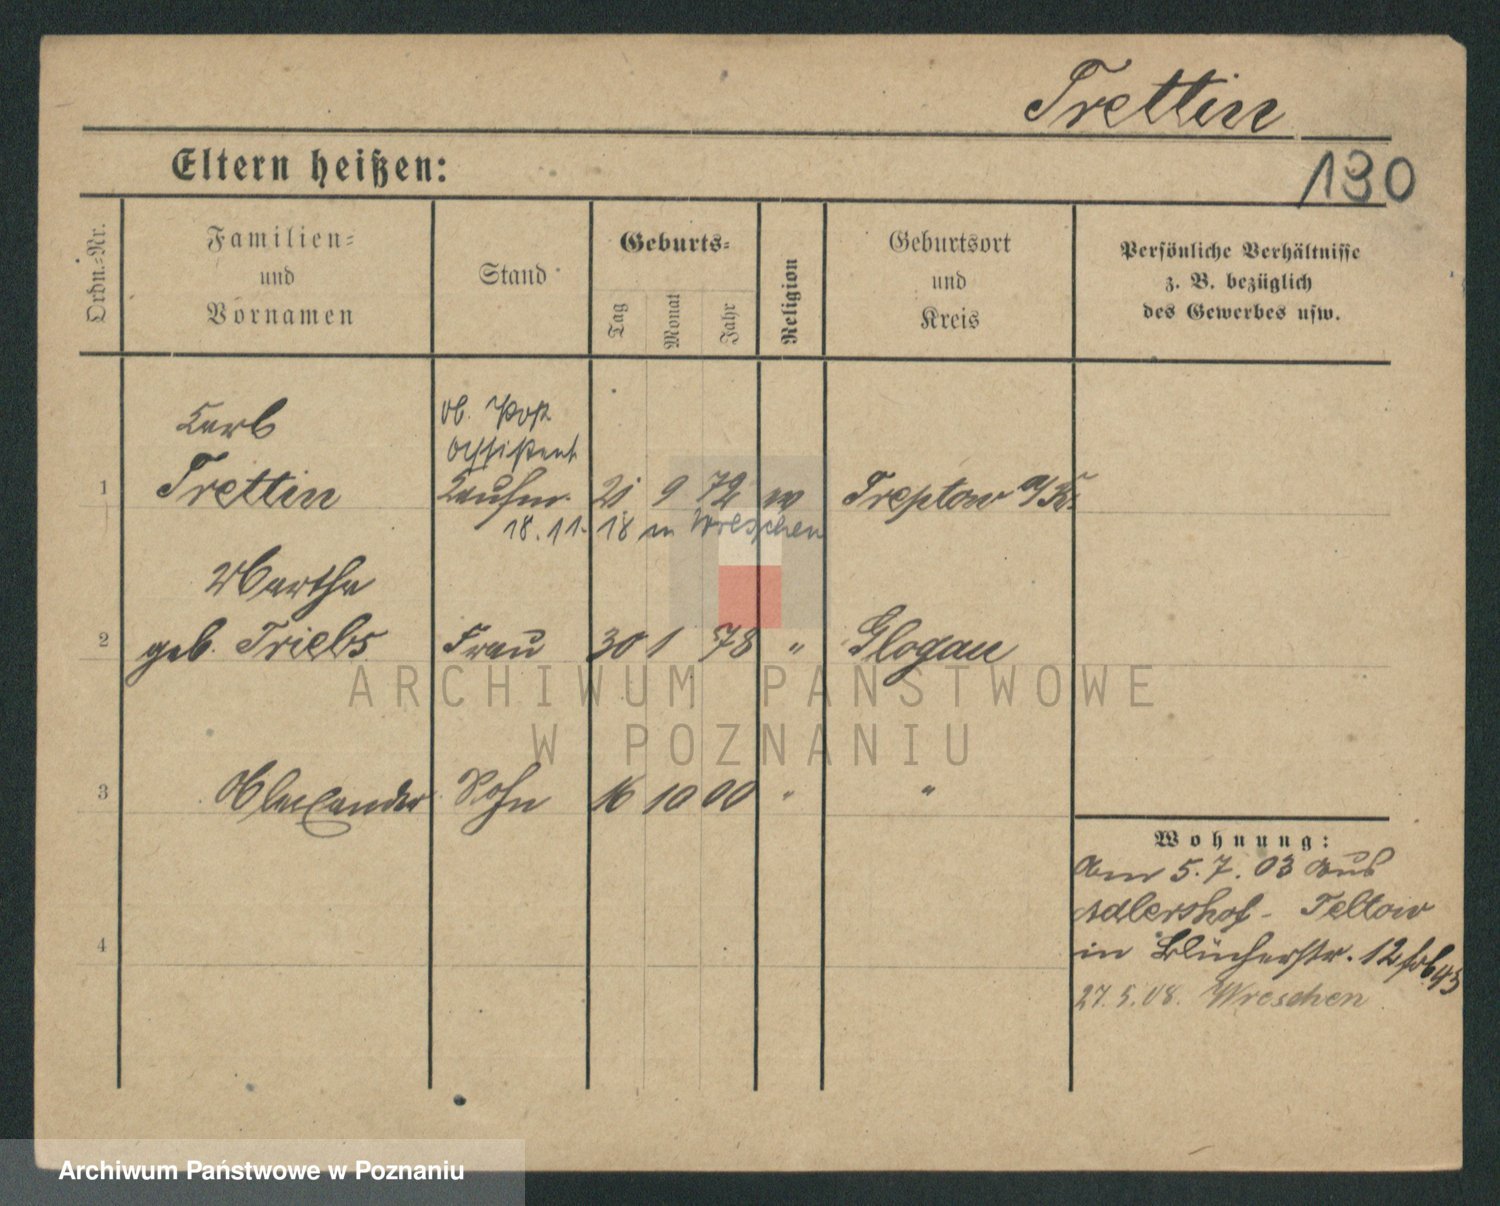 Trettin
130
Eltern heißen:
Ordn.-Nr.
Familien-
und
Vornamen
Stand
Geburts-
Tag
Monat
Jahr
Religion
Geburtsort
und
Kreis
Persönliche Verhältnisse
z. B. bezüglich
des Gewerbes usw.
Carl
ob. Post
Assistent
1 Trettin Kaufm. 21 9 72 ev Treptow a/R.
18.11. 18 in Wreschen
Martha
2 geb. Triebs Frau 30 1 78 " Glogau
3 Alexander Sohn 16 10 00 " "
4
Wohnung:
Am 5.7.03 aus
Adlershof - Teltow
in Blücherstr. 12
27.5.08. Wreschen
ARCHIWUM PAŃSTWOWE
W POZNANIU
Archiwum Państwowe w Poznaniu